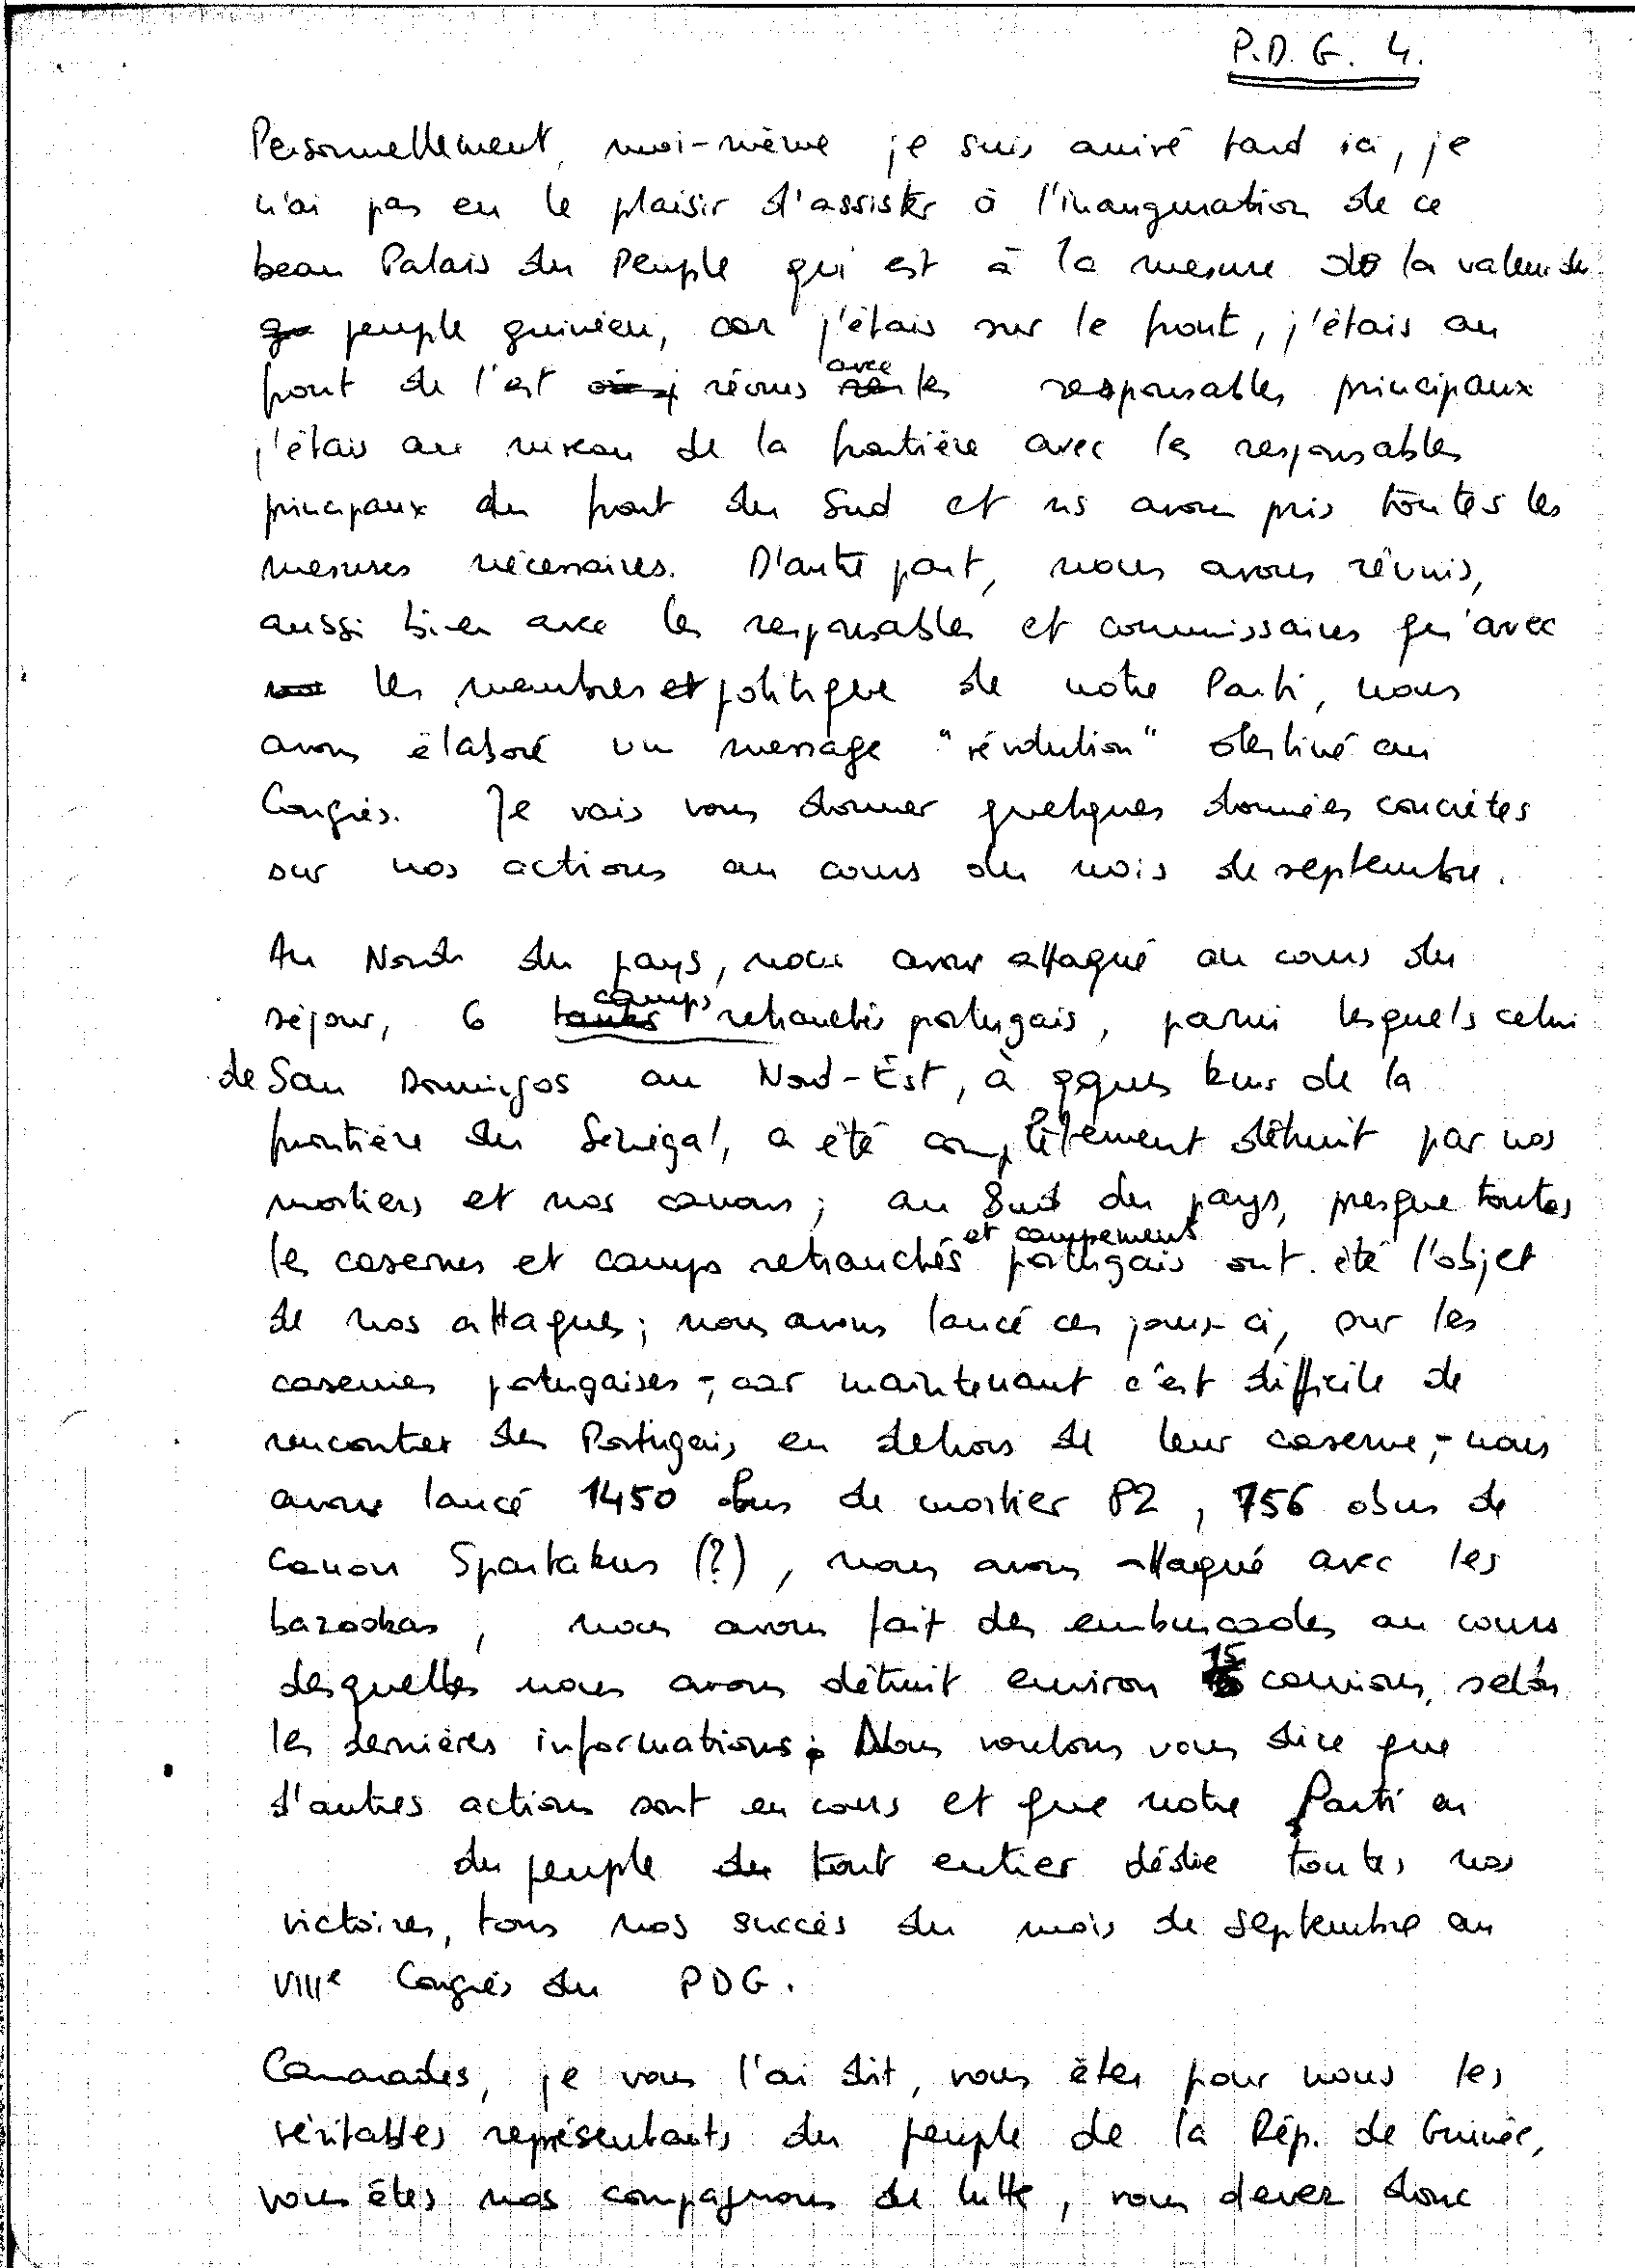 P.D.G. 4.
Personnellement, moi-même je suis arrivé tard ici, je
n'ai pas eu le plaisir d'assister à l'inauguration de ce
beau Palais du Peuple qui est à la mesure de la valeur du
peuple guinéen, car j'étais sur le front, j'étais au
front de l'est réunis avec les responsables principaux
j'étais au niveau de la frontière avec les responsables
principaux du front du Sud et ns avons pris toutes les
mesures nécessaires. D'autre part, nous avons réunis,
aussi bien avec les responsables et commissaires qu'avec
les membres et politique de notre Parti, nous
avons élaboré un message "révolution" destiné au
Congrès. Je vais vous donner quelques données concrètes
sur nos actions au cours du mois de septembre.
Au Nord du pays, nous avons attaqué au cours du
séjour, 6 camps retranchés portugais, parmi lesquels celui
de San Domingos au Nord-Est, à qques kms de la
frontière du Sénégal, a été complètement détruit par nos
mortiers et nos canons; au Sud du pays, presque toutes
les casernes et camps retranchés et campements portugais ont été l'objet
de nos attaques; nous avons lancé ces jours-ci, sur les
casernes portugaises -, car maintenant c'est difficile de
rencontrer des Portugais en dehors de leur caserne, - nous
avons lancé 1450 obus de mortier 82, 756 obus de
canon Spartakus (?), nous avons attaqué avec les
bazookas, nous avons fait des embuscades au cours
desquelles nous avons détruit environ 15 camions, selon
les dernières informations. Nous voulons vous dire que
d'autres actions sont en cours et que notre Parti au
du peuple tout entier dédie toutes nos
victoires, tous nos succès du mois de septembre au
VIIIe Congrès du PDG.
Camarades, je vous l'ai dit, vous êtes pour nous les
véritables représentants du peuple de la Rép. de Guinée,
vous êtes nos compagnons de lutte, vous devez donc